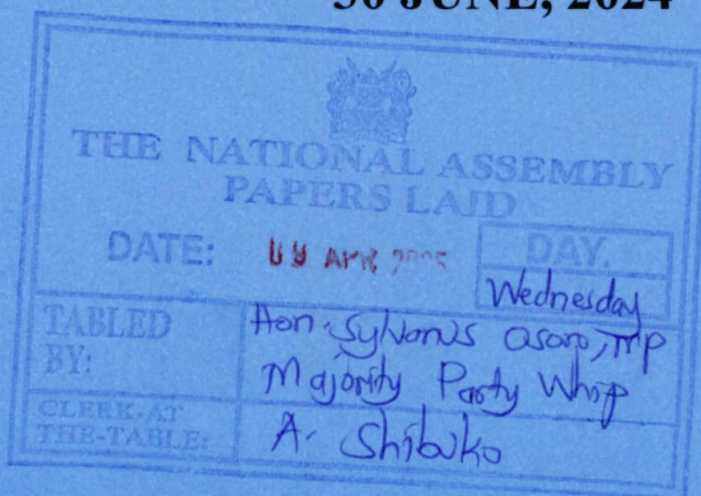 30 JUNE, 2024
THE NATIONAL ASSEMBLY
PAPERS LAID
DATE: 09 APR 2025
DAY.
Wednesday
TABLED BY:
Hon. Sylvanus Osoro, MP
Majority Party Whip
CLERK-AT THE-TABLE:
A. Shibuko